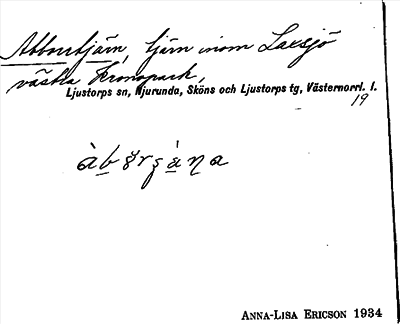 Abborrtjärn, tjärn inom Laxsjö
västra Kronopark,
Ljustorps sn, Njurunda, Sköns och Ljustorps tg, Västernorrl. l.
19
ANNA-LISA ERICSON 1934